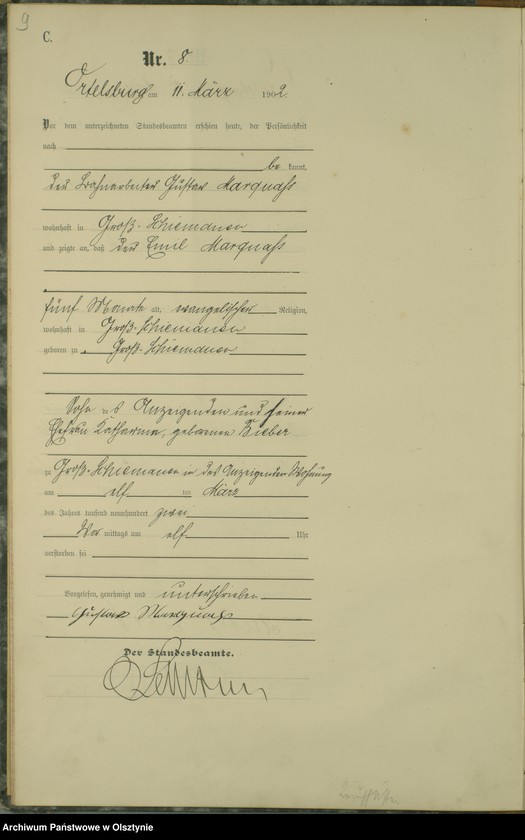 9
C.
Nr. 8.
Ortelsburg am 11. März 1902.
Vor dem unterzeichneten Standesbeamten erschien heute, der Persönlichkeit
nach
be kannt,
der Bahnarbeiter Gustav Marquaß
wohnhaft in Groß-Schiemanen
und zeigte an, daß der Emil Marquaß
fünf Monate alt, evangelischer Religion,
wohnhaft in Groß-Schiemanen
geboren zu Groß-Schiemanen
Sohn des Anzeigenden und seiner
Ehefrau Katharine, geborenen Bieber
zu Groß-Schiemanen in des Anzeigenden Wohnung
am elf ten März
des Jahres tausend neunhundert zwei
Vor mittags um elf Uhr
verstorben sei
Vorgelesen, genehmigt und unterschrieben
Gustav Marquaß
Der Standesbeamte.
Archiwum Państwowe w Olsztynie